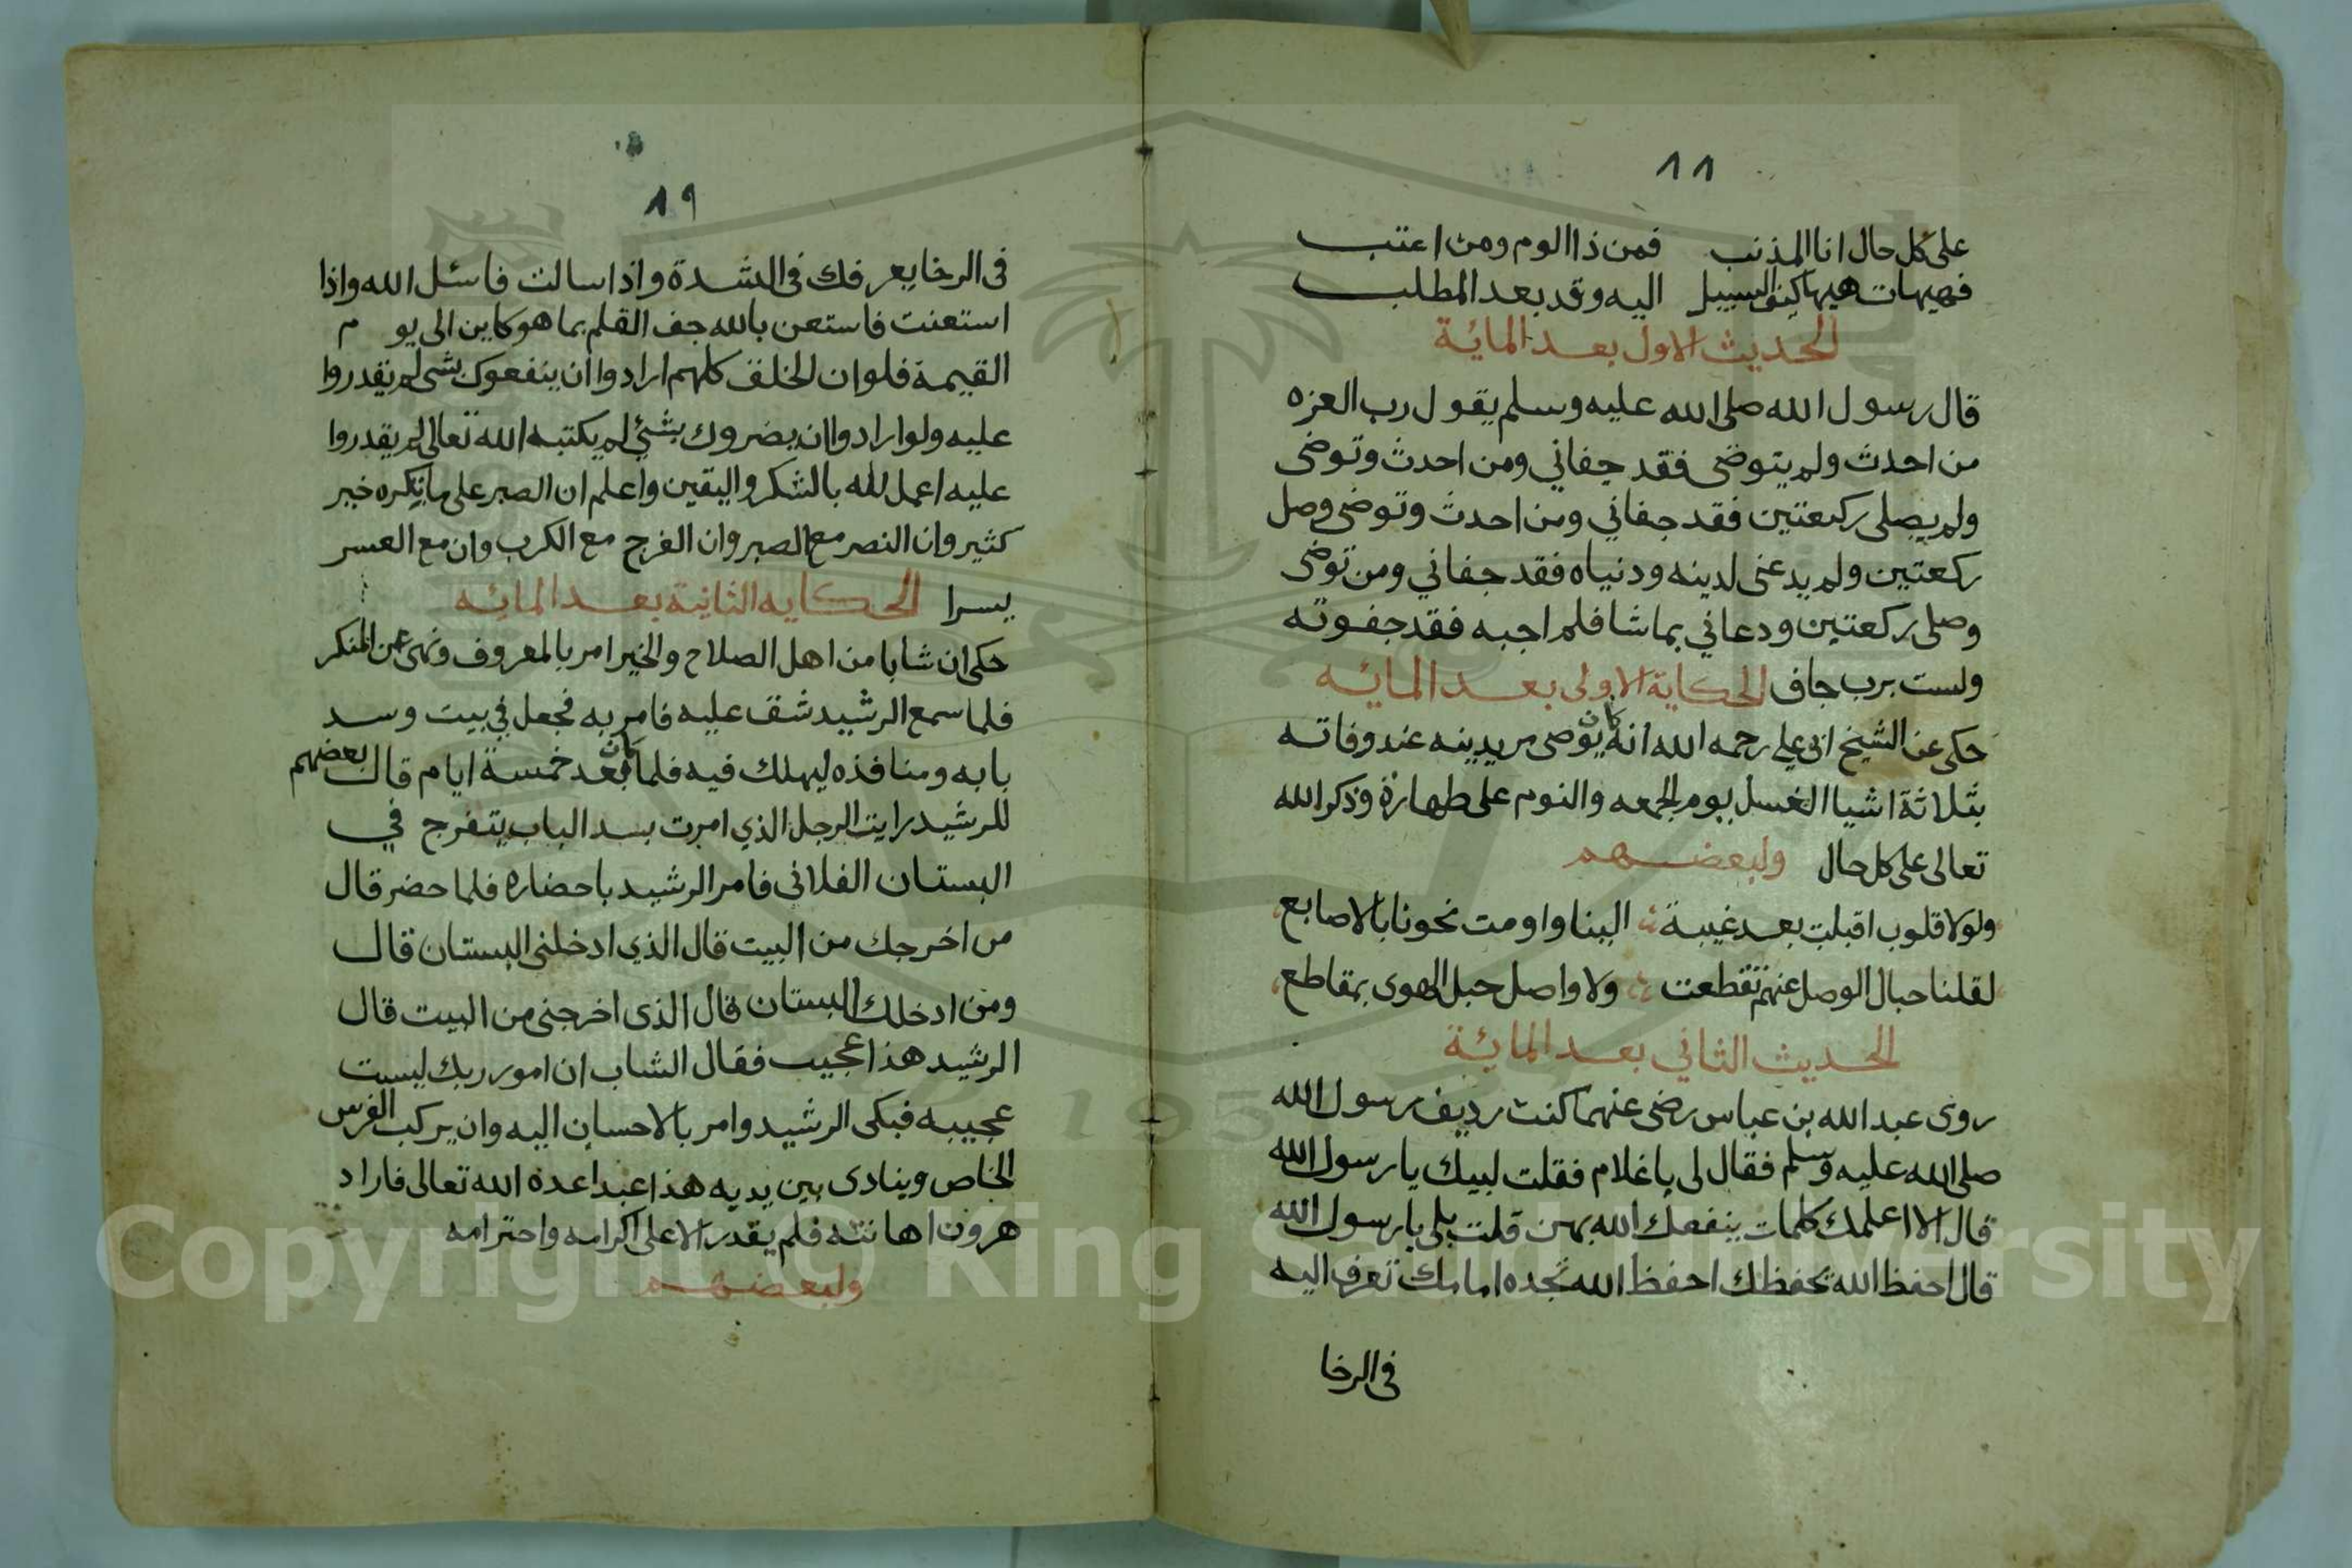 ٨٨
على كل حال انا المذنب فمن ذا الوم ومن اعتب
فهيهات هيهات كيف السبيل اليه وقد بعد المطلب
الحديث الاول بعد المائة
قال رسول الله صلى الله عليه وسلم يقول رب العزه
من احدث ولم يتوضى فقد جفاني ومن احدث وتوضى
ولم يصلى ركعتين فقد جفاني ومن احدث وتوضى وصل
ركعتين ولم يدعنى لدينه ودنياه فقد جفاني ومن توضى
وصلى ركعتين ودعاني بما شا فلم اجبه فقد جفوته
ولست برب جاف الحكاية الاولى بعد المائه
حكى عن الشيخ ابى علي رحمه الله انه كان يوصى مريدينه عند وفاته
بثلاثة اشيا الغسل يوم الجمعه والنوم على طهارة وذكر الله
تعالى على كل حال ولبعضهم
ولولا قلوب اقبلت بعد غيبة الينا واومت نحونا بالاصابع
لقلنا حبال الوصل عنهم تقطعت ولا واصل حبل الهوى بمقاطع
الحديث الثاني بعد المائة
روى عبد الله بن عباس رضى عنهما كنت رديف رسول الله
صلى الله عليه وسلم فقال لى يا غلام فقلت لبيك يا رسول الله
قال الا اعلمك كلمات ينفعك الله بهن قلت بلى يا رسول الله
قال احفظ الله يحفظك احفظ الله تجده امامك تعرف اليه
فى الرخا
٨٩
فى الرخا يعرفك فى الشدة واذا سالت فاسئل الله واذا
استعنت فاستعن بالله جف القلم بما هو كاين الى يو م
القيمة فلو ان الخلق كلهم ارادوا ان ينفعوك بشى لم يقدروا
عليه ولو ارادوا ان يضروك بشئ لم يكتبه الله تعالى لم يقدروا
عليه اعمل لله بالشكر واليقين واعلم ان الصبر على ما تكره خير
كثير وان النصر مع الصبر وان الفرج مع الكرب وان مع العسر
يسرا الحكايه الثانية بعد المائه
حكى ان شابا من اهل الصلاح والخير امر بالمعروف ونهى عن المنكر
فلما سمع الرشيد شق عليه فامر به فجعل في بيت وسد
بابه ومنافذه ليهلك فيه فلما كان بعد خمسة ايام قال بعضهم
للرشيد رايت الرجل الذي امرت بسد الباب يتفرج في
البستان الفلانى فامر الرشيد باحضاره فلما حضر قال
من اخرجك من البيت قال الذي ادخلنى البستان قال
ومن ادخلك البستان قال الذى اخرجنى من البيت قال
الرشيد هذا عجيب فقال الشاب ان امور ربك ليست
عجيبه فبكى الرشيد وامر بالاحسان اليه وان يركب الفرس
الخاص وينادى بين يديه هذا عبد اعده الله تعالى فاراد
هرون اهانته فلم يقدر الا على اكرامه واحترامه
ولبعضهم
Copyright © King Saud University